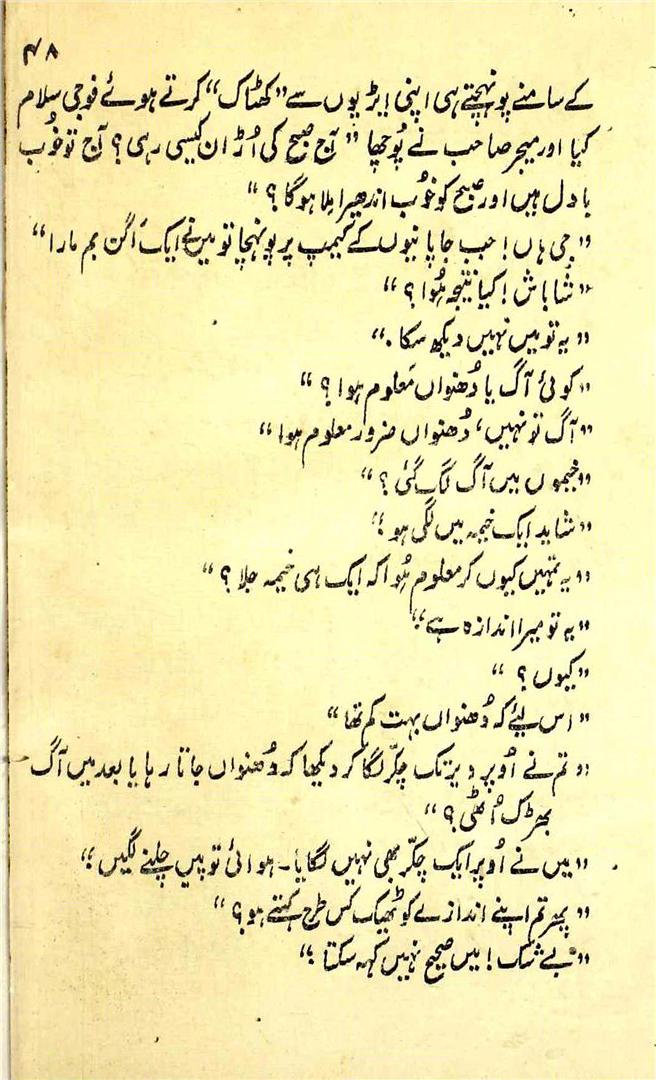 ۴۸
کے سامنے پونہچتے ہی اپنی ایڑیوں سے “کھٹاک“ کرتے ہوئے فوجی سلام
کیا اور میجر صاحب نے پُوچھا “ آج صبح کی اُڑان کیسی رہی؟ آج تو خُوب
بادل ہیں اور صبح کو خُوب اندھیرا ملا ہوگا؟ “
“جی ہاں! جب جاپانیوں کے کیمپ پر پونہچا تو میں نے ایک اَگن بم مارا“
“شاباش! کیا نتیجہ ہُوا؟ “
“یہ تو میں نہیں دیکھ سکا۔“
“کوئی آگ یا دُھنواں مَعلوم ہوا؟ “
“آگ تو نہیں، دُھنواں ضرور معلوم ہوا “
“خیموں میں آگ لگ گئی؟ “
“شاید ایک خیمہ میں لگی ہو۔“
“یہ تمہیں کیوں کر معلوم ہُوا کہ ایک ہی خیمہ جلا؟ “
“یہ تو میرا اندازہ ہے۔“
“کیوں؟ “
“اس لیئے کہ دُھنواں بہت کم تھا “
“تم نے اُوپر دیر تک چکّر لگا کر دیکھا کہ دُھنواں جاتا رہا یا بعد میں آگ
بھڑک اُٹھی؟ “
“میں نے اُوپر ایک چکّر بھی نہیں لگایا۔ ہوائی توپیں چلنے لگیں۔“
“پھر تم اپنے اندازے کو ٹھیک کس طرح کہتے ہو؟ “
“بے شک! میں صحیح نہیں کہہ سکتا۔“